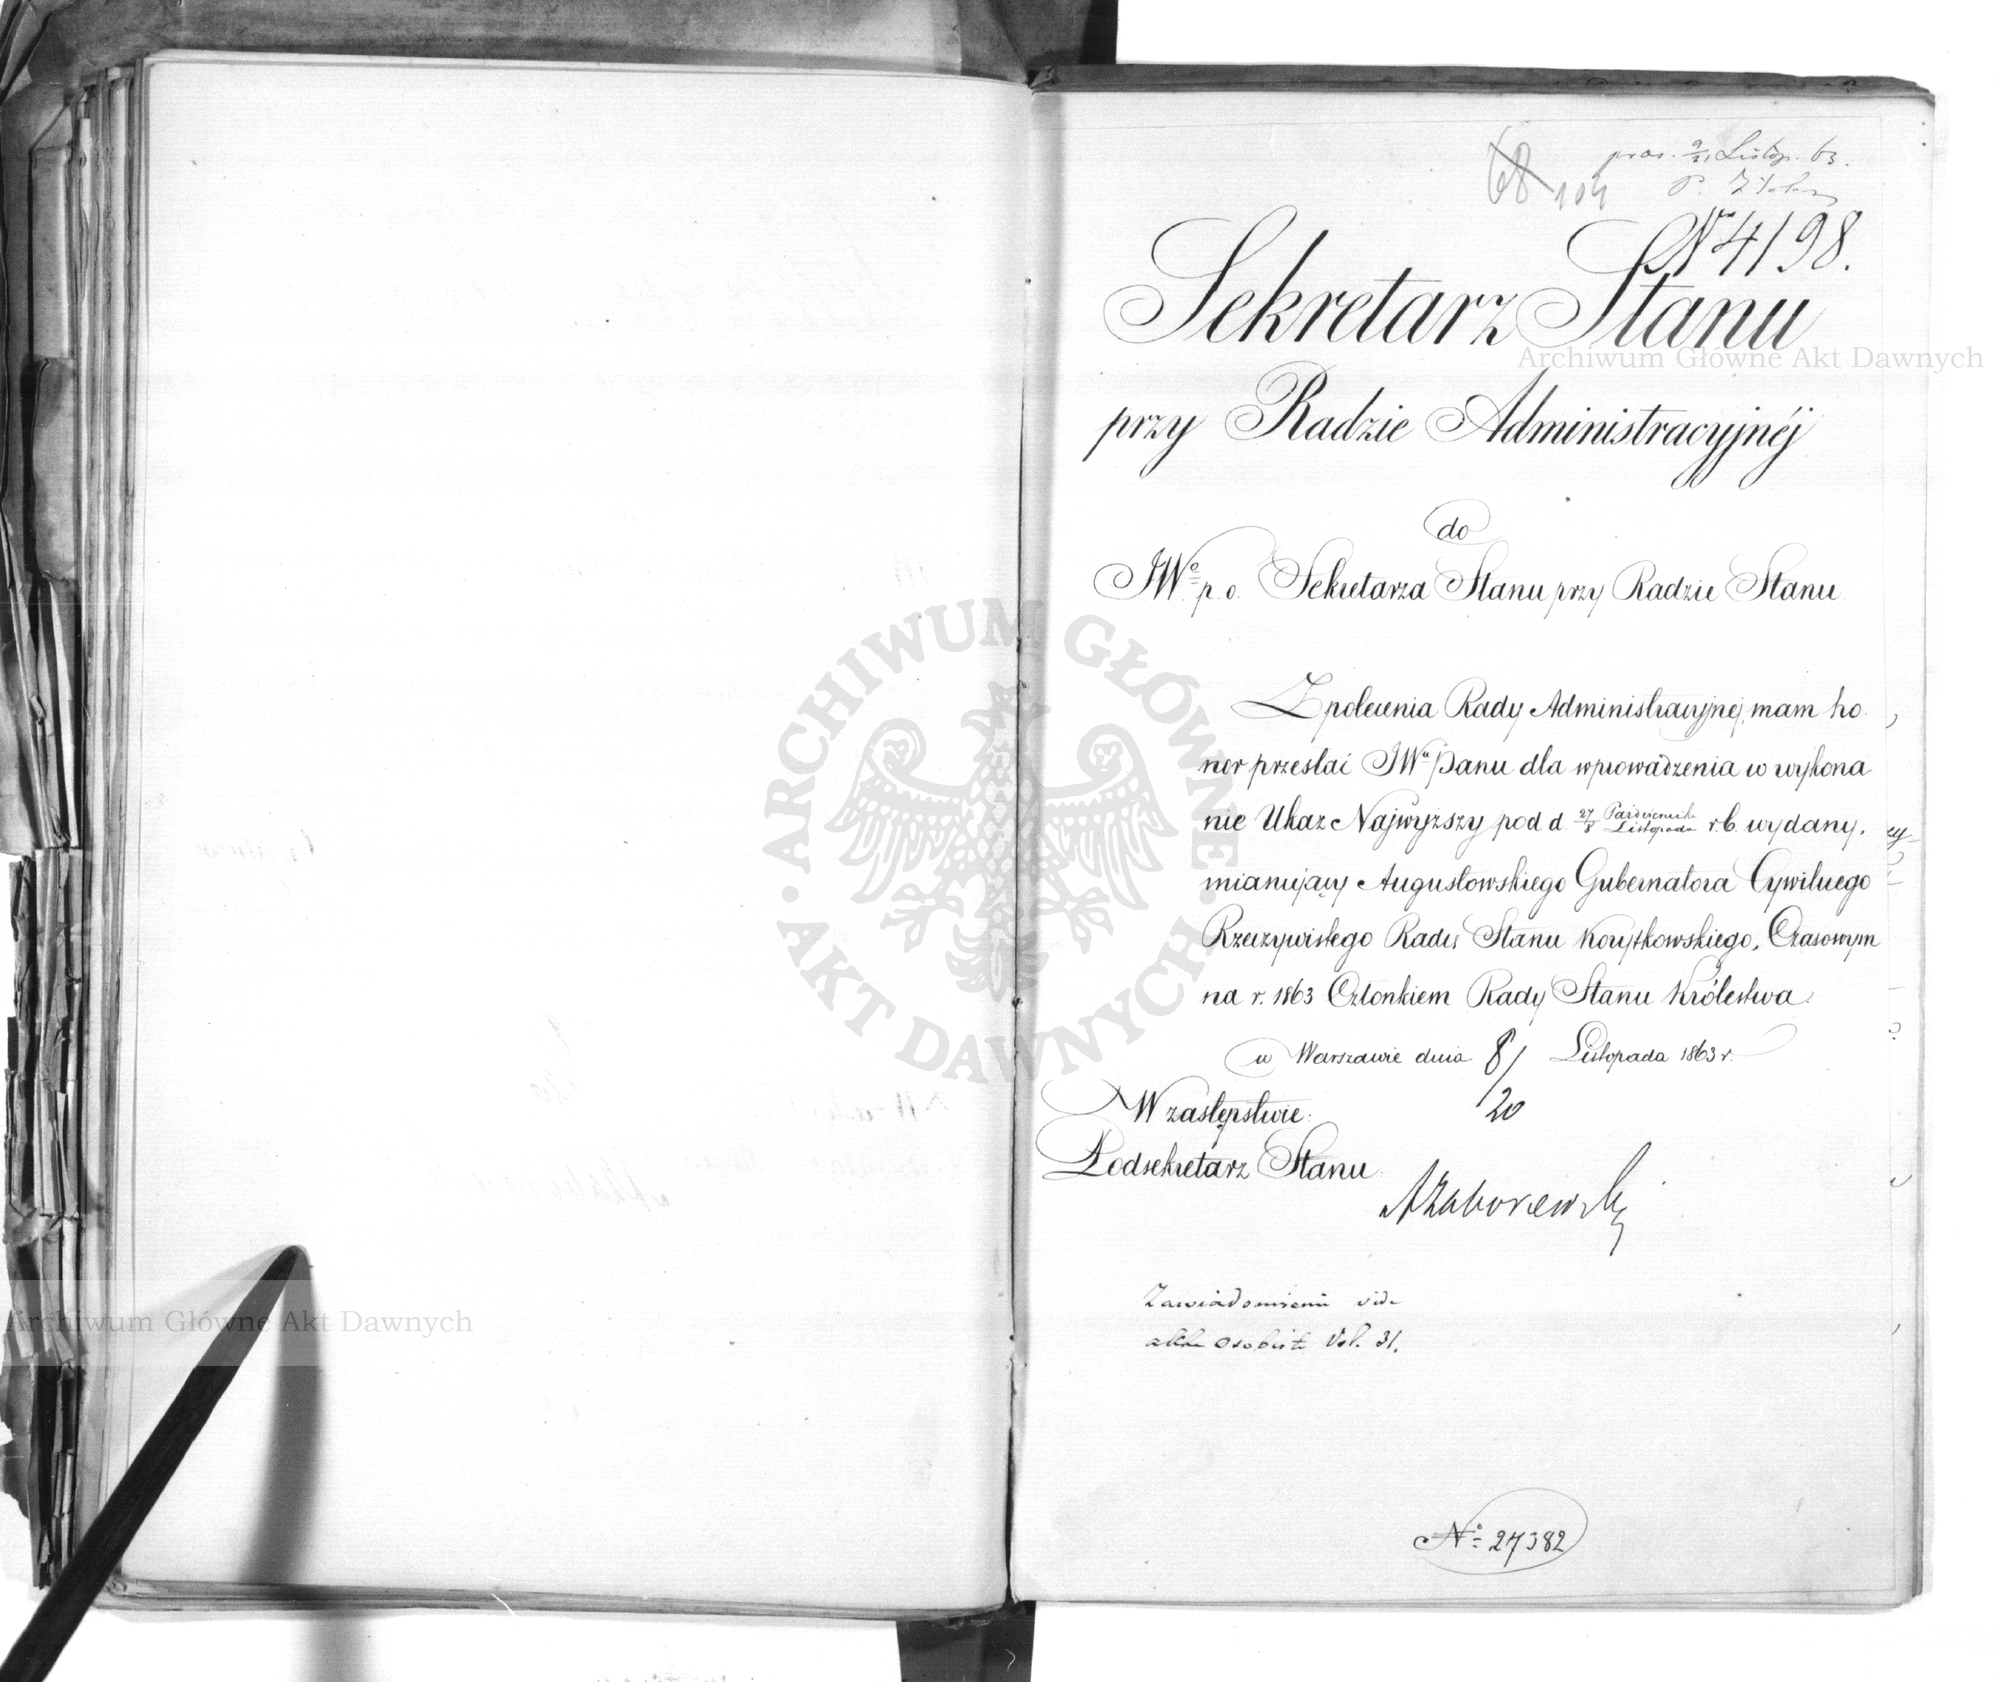 68 104
pras. 9/21 Listop. 63.
№ 4198.
Sekretarz Stanu
przy Radzie Administracyjnéj
do
JWo p. o. Sekretarza Stanu przy Radzie Stanu.
Z polecenia Rady Administracyjnej, mam ho
nor przesłać JWu Panu dla wprowadzenia w wykona
nie Ukaz Najwyższy pod d. 27/8 Październik/Listopada r. b. wydany,
mianujący Augustowskiego Gubernatora Cywilnego
Rzeczywistego Radcę Stanu Korytkowskiego, Czasowym
na r. 1863 Członkiem Rady Stanu Królestwa.
w Warszawie dnia 8/20 Listopada 1863 r.
W zastępstwie:
Podsekretarz Stanu.
Zawiadomienie vide
akta osobiste Vol. 31.
№ 27382
Archiwum Główne Akt Dawnych
Archiwum Główne Akt Dawnych
ARCHIWUM GŁÓWNE AKT DAWNYCH